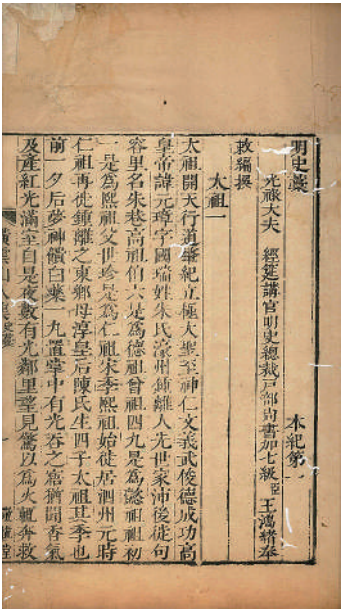 明史藁 本紀第一
光祿大夫 經筵講官明史總裁戶部尚書加七級臣王鴻緒奉
敕編撰
太祖一
太祖開天行道肇紀立極大聖至神仁文義武俊德成功高
皇帝諱元璋字國瑞姓朱氏濠州鍾離人先世家沛後徙句
容里名朱巷高祖伯六是爲德祖曾祖四九是爲懿祖祖初
一是爲熙祖父世珍是爲仁祖宋季熙祖始徙居泗州元時
仁祖再徙鍾離之東鄉母淳皇后陳氏生四子太祖其季也
前一夕后夢神饋白藥一丸置掌中有光吞之寤猶聞香氣
及產紅光滿室自是夜數有光鄰里望見驚以爲火輒奔救